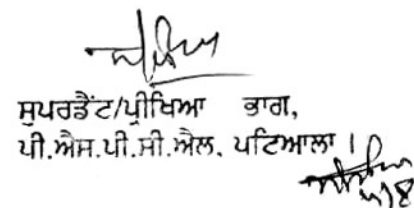 ਸੁਪਰਡੈਂਟ/ਪ੍ਰੀਖਿਆ ਭਾਗ,
ਪੀ.ਐਸ.ਪੀ.ਸੀ.ਐਲ. ਪਟਿਆਲਾ ।